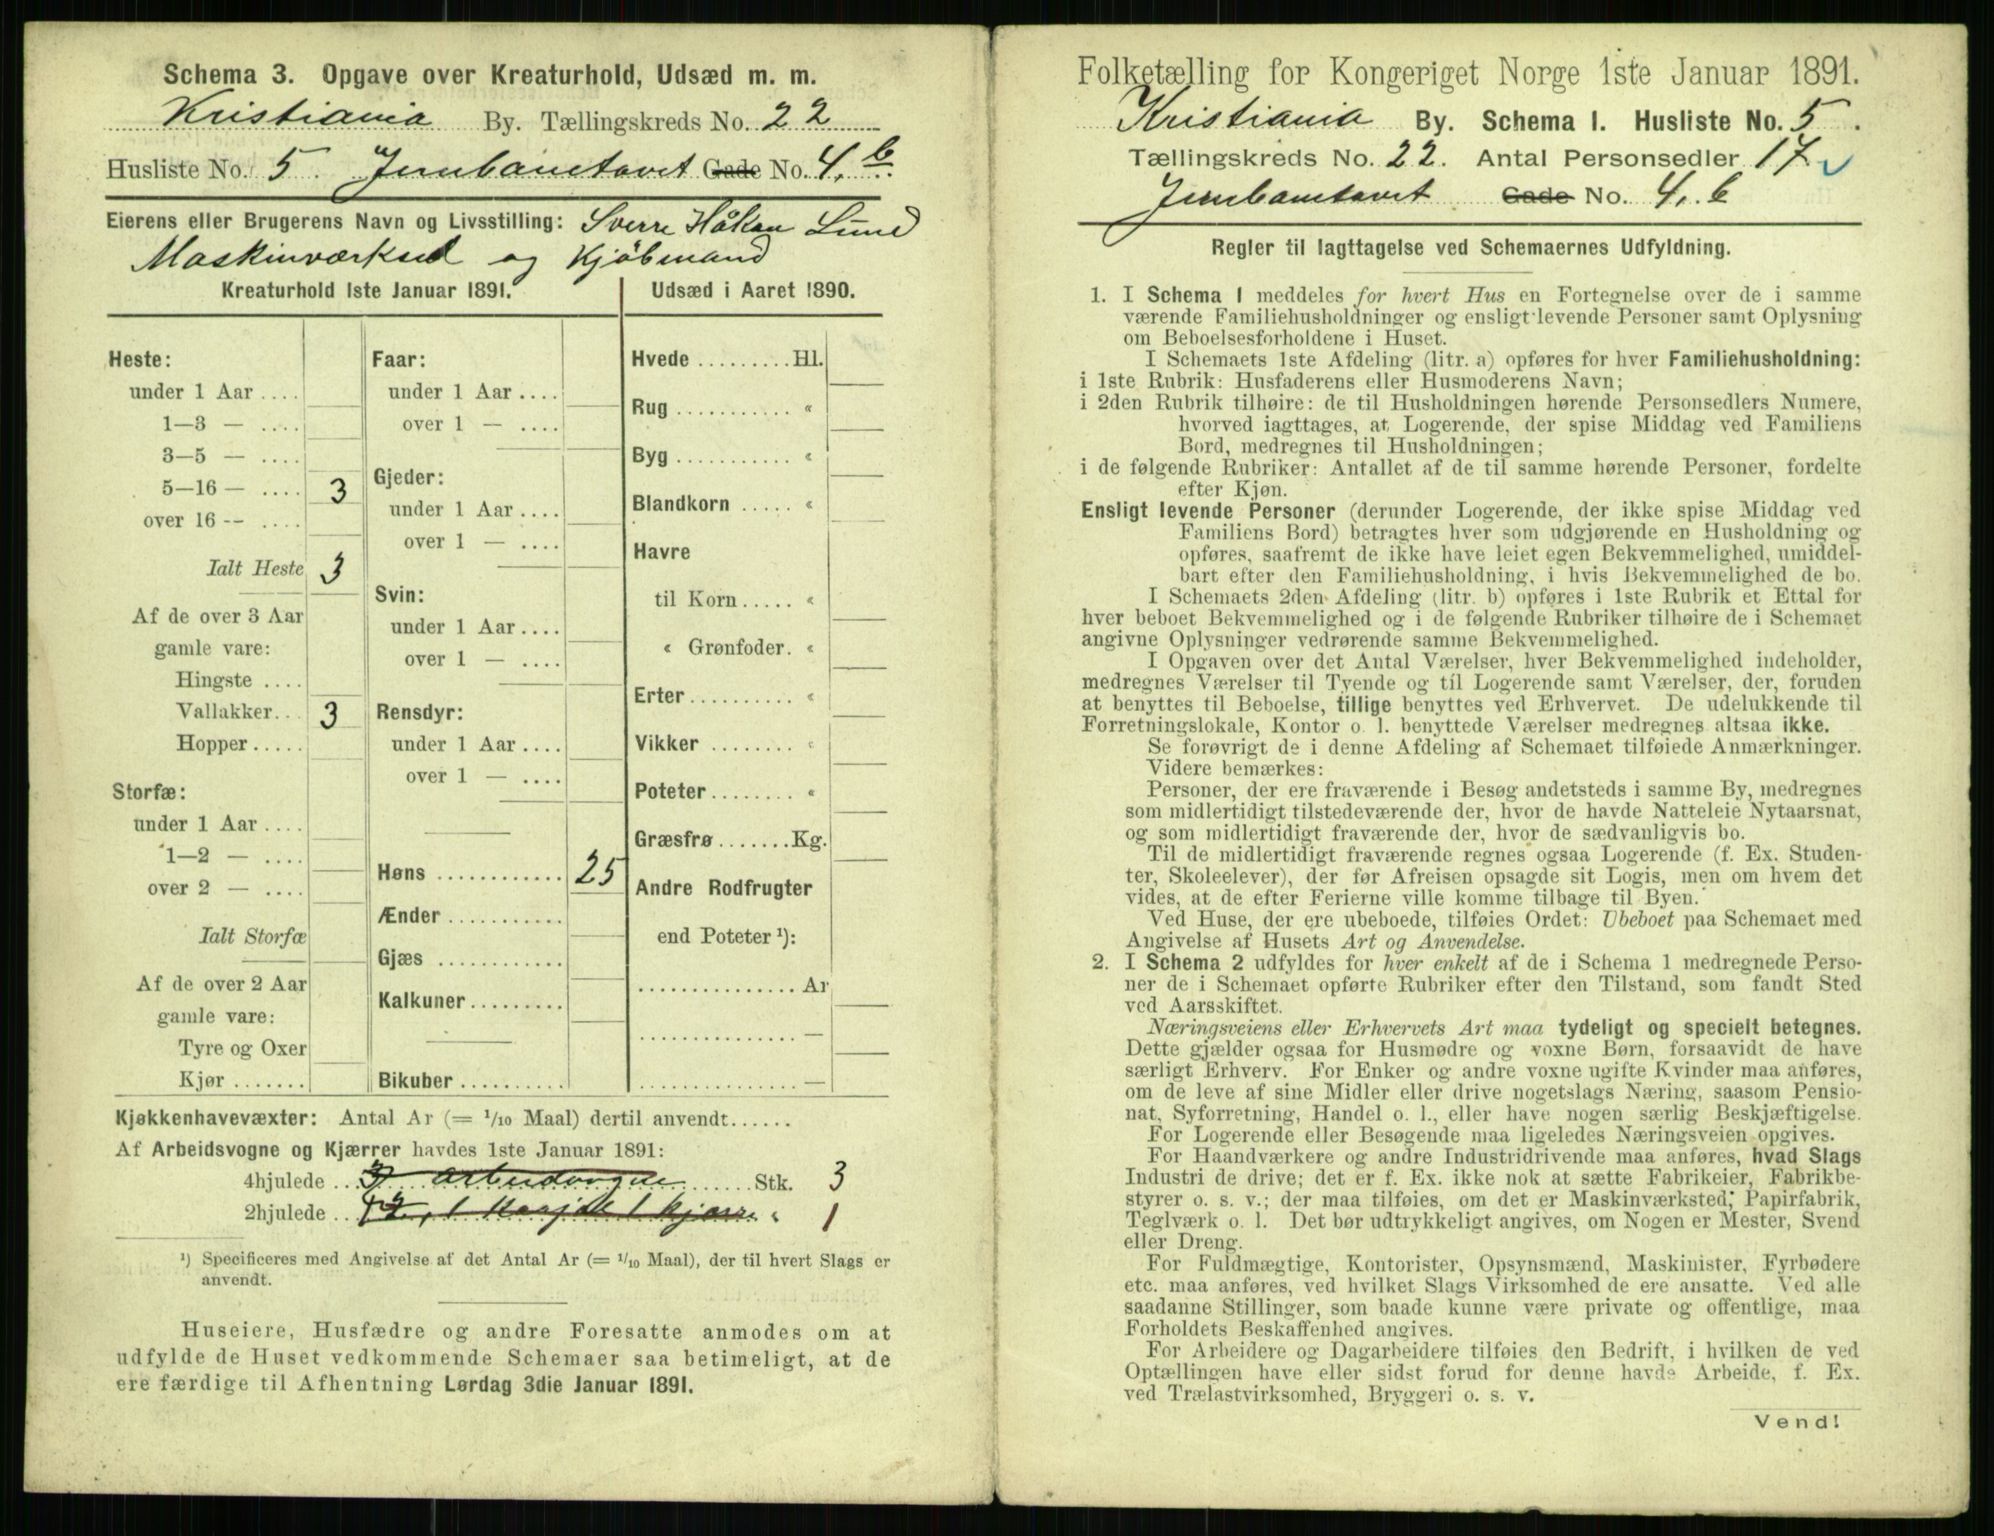 Schema 3. Opgave over Kreaturhold, Udsæd m. m.
Kristiania By. Tællingskreds No. 22
Husliste No. 5. Jernbanetorvet Gade No. 4. b.
Eierens eller Brugerens Navn og Livsstilling: Sverre Håkon Lund
Maskinværksted og Kjøbmand
Kreaturhold 1ste Januar 1891.
Heste:
under 1 Aar ....
1—3 — ....
3—5 — ....
5—16 — .... 3
over 16 -- ....
Ialt Heste 3
Af de over 3 Aar
gamle vare:
Hingste ....
Vallakker.. 3
Hopper .....
Storfæ:
under 1 Aar ....
1—2 — ....
over 2 — ....
Ialt Storfæ
Af de over 2 Aar
gamle vare:
Tyre og Oxer
Kjør .......
Faar:
under 1 Aar ....
over 1 — ....
Gjeder:
under 1 Aar ....
over 1 — ....
Svin:
under 1 Aar ....
over 1 — ....
Rensdyr:
under 1 Aar ....
over 1 — ....
Høns ............ 25
Ænder ...........
Gjæs ............
Kalkuner.........
Bikuber ..........
Udsæd i Aaret 1890.
Hvede ......... Hl.
Rug ........... «
Byg ........... «
Blandkorn ..... «
Havre
til Korn..... «
« Grønfoder. «
Erter.......... «
Vikker ........ «
Poteter........ «
Græsfrø ....... Kg.
Andre Rodfrugter
end Poteter ¹):
............... Ar
............... —
............... —
Kjøkkenhavevæxter: Antal Ar (= 1/10 Maal) dertil anvendt......
Af Arbeidsvogne og Kjærrer havdes 1ste Januar 1891:
4hjulede .. 3 Arbeidsvogne ...... Stk. 3
2hjulede .. 1 Kjærre « 1
¹) Specificeres med Angivelse af det Antal Ar (= 1/10 Maal), der til hvert Slags er
anvendt.
Huseiere, Husfædre og andre Foresatte anmodes om at
udfylde de Huset vedkommende Schemaer saa betimeligt, at de
ere færdige til Afhentning Lørdag 3die Januar 1891.
Folketælling for Kongeriget Norge 1ste Januar 1891.
Kristiania By. Schema 1. Husliste No. 5.
Tællingskreds No. 22. Antal Personsedler 17.
Jernbanetorvet Gade No. 4. b
Regler til Iagttagelse ved Schemaernes Udfyldning.
1. I Schema 1 meddeles for hvert Hus en Fortegnelse over de i samme
værende Familiehusholdninger og ensligt levende Personer samt Oplysning
om Beboelsesforholdene i Huset.
I Schemaets 1ste Afdeling (litr. a) opføres for hver Familiehusholdning:
i 1ste Rubrik: Husfaderens eller Husmoderens Navn;
i 2den Rubrik tilhøire: de til Husholdningen hørende Personsedlers Numere,
hvorved iagttages, at Logerende, der spise Middag ved Familiens
Bord, medregnes til Husholdningen;
i de følgende Rubriker: Antallet af de til samme hørende Personer, fordelte
efter Kjøn.
Ensligt levende Personer (derunder Logerende, der ikke spise Middag ved
Familiens Bord) betragtes hver som udgjørende en Husholdning og
opføres, saafremt de ikke have leiet egen Bekvemmelighed, umiddel-
bart efter den Familiehusholdning, i hvis Bekvemmelighed de bo.
I Schemaets 2den Afdeling (litr. b) opføres i 1ste Rubrik et Ettal for
hver beboet Bekvemmelighed og i de følgende Rubriker tilhøire de i Schemaet
angivne Oplysninger vedrørende samme Bekvemmelighed.
I Opgaven over det Antal Værelser, hver Bekvemmelighed indeholder,
medregnes Værelser til Tyende og til Logerende samt Værelser, der, foruden
at benyttes til Beboelse, tillige benyttes ved Erhvervet. De udelukkende til
Forretningslokale, Kontor o. l. benyttede Værelser medregnes altsaa ikke.
Se forøvrigt de i denne Afdeling af Schemaet tilføiede Anmærkninger.
Videre bemærkes:
Personer, der ere fraværende i Besøg andetsteds i samme By, medregnes
som midlertidigt tilstedeværende der, hvor de havde Natteleie Nytaarsnat,
og som midlertidigt fraværende der, hvor de sædvanligvis bo.
Til de midlertidigt fraværende regnes ogsaa Logerende (f. Ex. Studen-
ter, Skoleelever), der før Afreisen opsagde sit Logis, men om hvem det
vides, at de efter Ferierne ville komme tilbage til Byen.
Ved Huse, der ere ubeboede, tilføies Ordet: Ubeboet paa Schemaet med
Angivelse af Husets Art og Anvendelse.
2. I Schema 2 udfyldes for hver enkelt af de i Schema 1 medregnede Perso-
ner de i Schemaet opførte Rubriker efter den Tilstand, som fandt Sted
ved Aarsskiftet.
Næringsveiens eller Erhvervets Art maa tydeligt og specielt betegnes.
Dette gjælder ogsaa for Husmødre og voxne Børn, forsaavidt de have
særligt Erhverv. For Enker og andre voxne ugifte Kvinder maa anføres,
om de leve af sine Midler eller drive nogetslags Næring, saasom Pensio-
nat, Syforretning, Handel o. l., eller have nogen særlig Beskjæftigelse.
For Logerende eller Besøgende maa ligeledes Næringsveien opgives.
For Haandværkere og andre Industridrivende maa anføres, hvad Slags
Industri de drive; det er f. Ex. ikke nok at sætte Fabrikeier, Fabrikbe-
styrer o. s. v.; der maa tilføies, om det er Maskinværksted, Papirfabrik,
Teglværk o. l. Det bør udtrykkeligt angives, om Nogen er Mester, Svend
eller Dreng.
For Fuldmægtige, Kontorister, Opsynsmænd, Maskinister, Fyrbødere
etc. maa anføres, ved hvilket Slags Virksomhed de ere ansatte. Ved alle
saadanne Stillinger, som baade kunne være private og offentlige, maa
Forholdets Beskaffenhed angives.
For Arbeidere og Dagarbeidere tilføies den Bedrift, i hvilken de ved
Optællingen have eller sidst forud for denne havde Arbeide, f. Ex.
ved Trælastvirksomhed, Bryggeri o. s. v.
Vend!